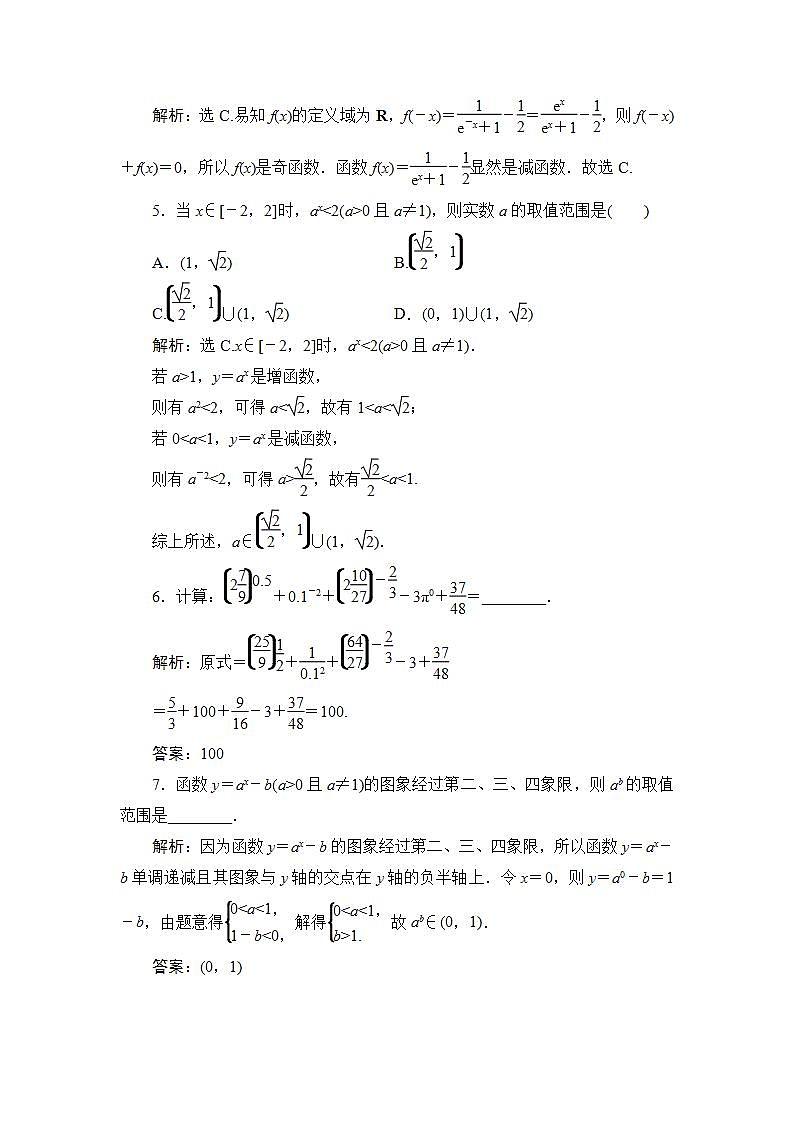 解析：选 C.易知 f(x)的定义域为 R，f(－x)＝1/(e⁻ˣ＋1)－1/2＝eˣ/(eˣ＋1)－1/2，则 f(－x)
＋f(x)＝0，所以 f(x)是奇函数．函数 f(x)＝1/(eˣ＋1)－1/2显然是减函数．故选 C.
5．当 x∈[－2，2]时，aˣ<2(a>0 且 a≠1)，则实数 a 的取值范围是(　　)
A．(1，√2)　　B.(√2/2，1)
C.(√2/2，1)∪(1，√2)　　D．(0，1)∪(1，√2)
解析：选 C.x∈[－2，2]时，aˣ<2(a>0 且 a≠1)．
若 a>1，y＝aˣ 是增函数，
则有 a²<2，可得 a<√2，故有 1<a<√2；
若 0<a<1，y＝aˣ 是减函数，
则有 a⁻²<2，可得 a>√2/2，故有√2/2<a<1.
综上所述，a∈(√2/2，1)∪(1，√2)．
6．计算：(2 7/9)^0.5＋0.1⁻²＋(2 10/27)^(－2/3)－3π⁰＋37/48＝________．
解析：原式＝(25/9)^(1/2)＋1/0.1²＋(64/27)^(－2/3)－3＋37/48
＝5/3＋100＋9/16－3＋37/48＝100.
答案：100
7．函数 y＝aˣ－b(a>0 且 a≠1)的图象经过第二、三、四象限，则 aᵇ 的取值
范围是________．
解析：因为函数 y＝aˣ－b 的图象经过第二、三、四象限，所以函数 y＝aˣ－
b 单调递减且其图象与 y 轴的交点在 y 轴的负半轴上．令 x＝0，则 y＝a⁰－b＝1
－b，由题意得{0<a<1，1－b<0，解得{0<a<1，b>1.故 aᵇ∈(0，1)．
答案：(0，1)